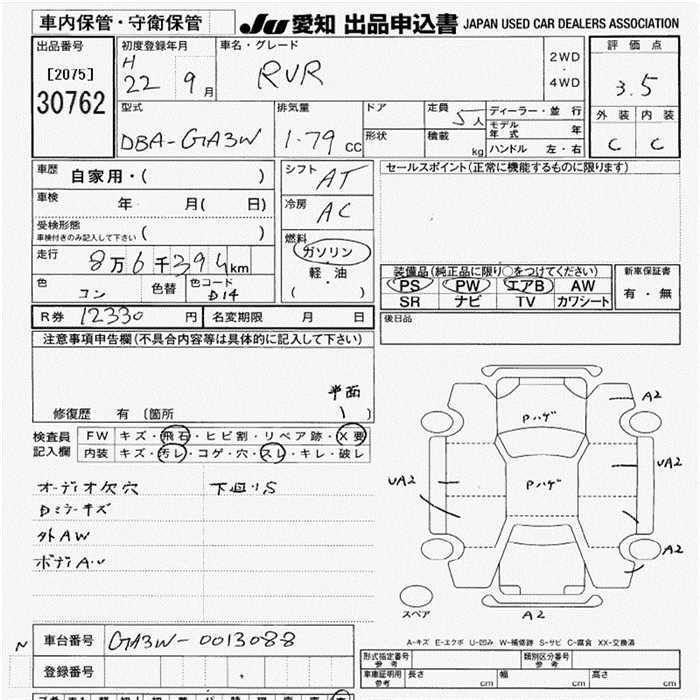 車内保管・守衛保管
JU 愛知 出品申込書 JAPAN USED CAR DEALERS ASSOCIATION
出品番号
[2075]
30762
初度登録年月
H
22 9 月
車名・グレード
RVR
2WD
・
4WD
評価点
3.5
外装 内装
C C
型式
DBA-GA3W
排気量
1.79 CC
ドア
形状
定員 5 人
積載 kg
ディーラー・並 行
モデル年式 年
ハンドル 左・右
車歴
自家用・( )
車検
年 月( 日)
受検形態
車検付きのみ記入して下さい ( )
走行
8万6千394km
色
コン
色替
色コード
D14
シフト
AT
冷房
AC
燃料
ガソリン
・
軽 油
( )
セールスポイント(正常に機能するものに限ります)
装備品(純正品に限り○をつけてください)
PS PW エアB AW
SR ナビ TV カワシート
新車保証書
有・無
R券 12330 円 名変期限 月 日
後日品
注意事項申告欄(不具合内容等は具体的に記入して下さい)
修復歴 有〔箇所 〕
検査員
記入欄
FW キズ・飛石・ヒビ割・リペア跡・X要
内装 キズ・汚レ・コゲ・穴・スレ・キレ・破レ
オーディオ欠穴
下回りS
Dミラーキズ
外AW
ボディA・U
A2
Pハゲ
UA2
UA2
Pハゲ
A2
スペア
A2
A-キズ E-エクボ U-凹み W-補修跡 S-サビ C-腐食 XX-交換済
N
車台番号 GA3W-0013088
登録番号
形式指定番号
参考
類別区分番号
参考
車庫証明用
参考
長さ cm
幅 cm
高さ cm